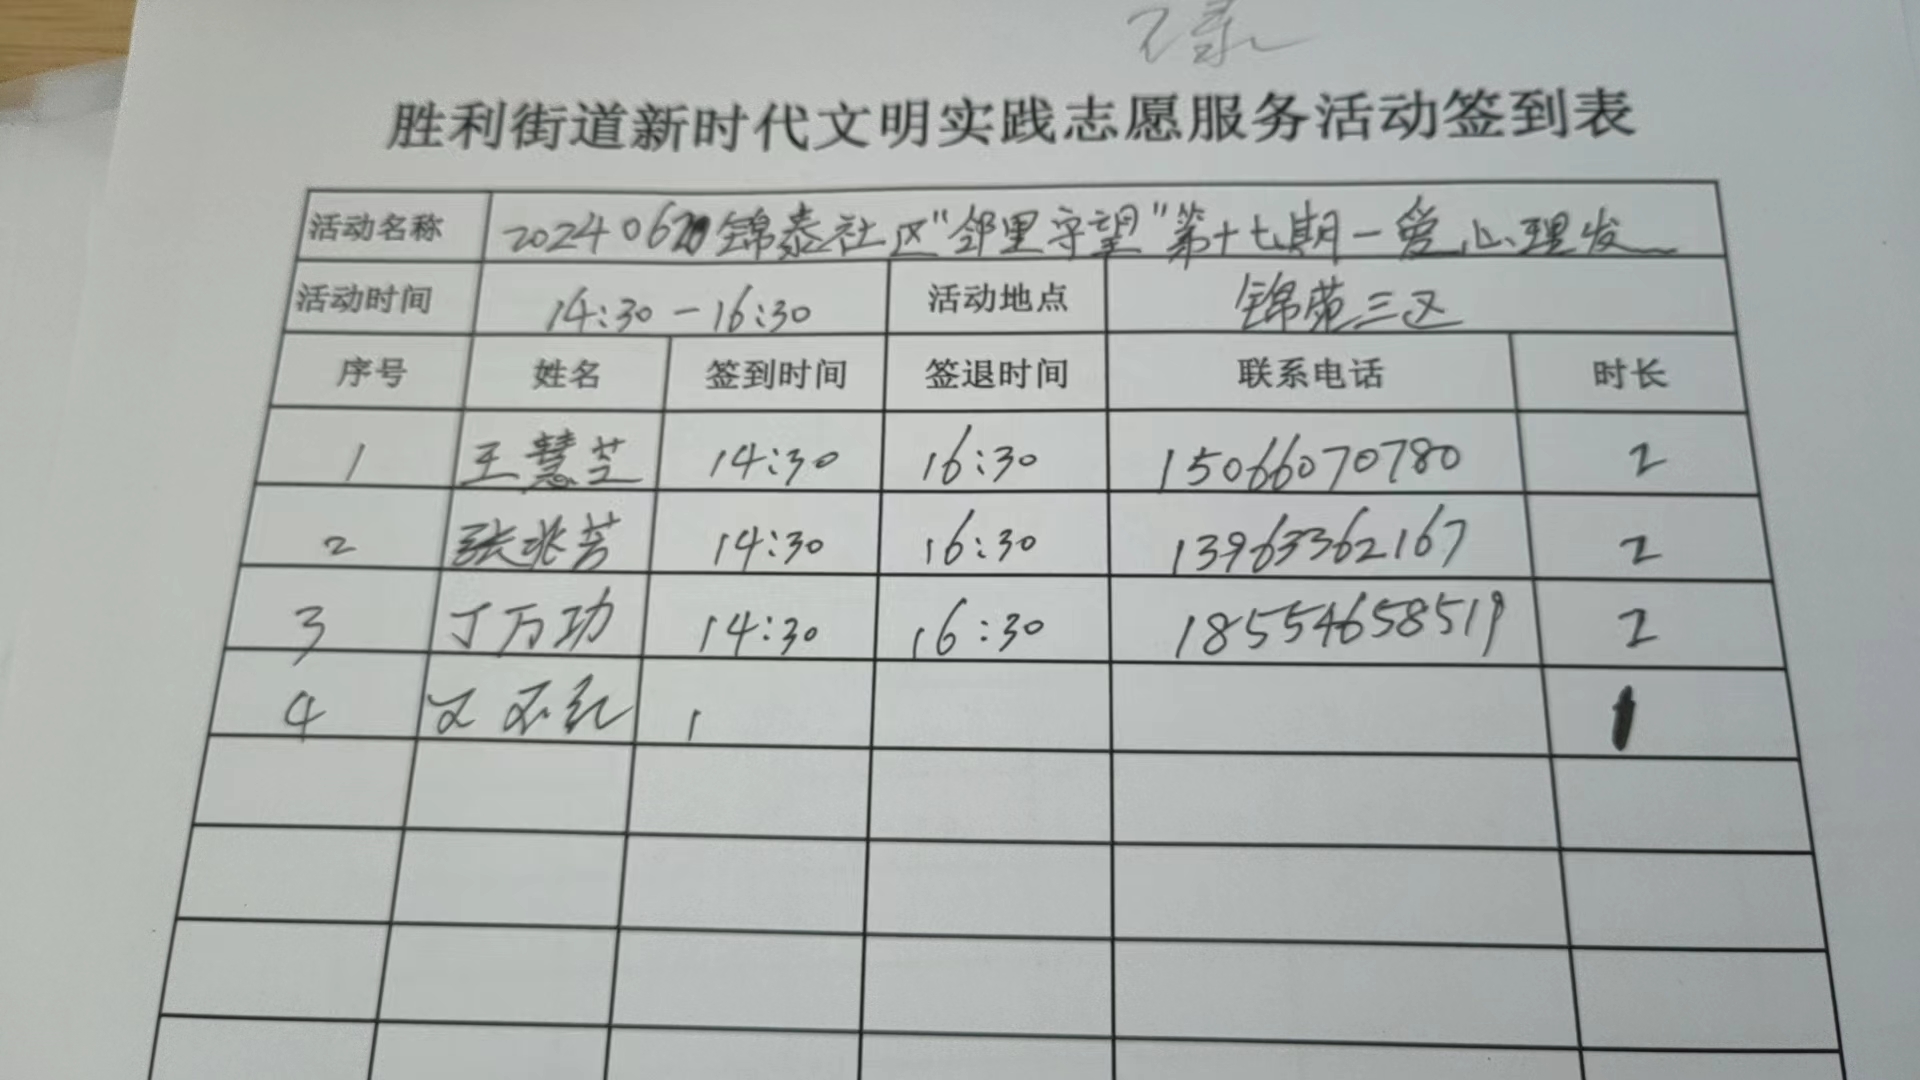 胜利街道新时代文明实践志愿服务活动签到表
活动名称 20240620锦泰社区“邻里守望”第十七期—爱心理发
活动时间 14:30-16:30 活动地点 锦苑三区
序号 姓名 签到时间 签退时间 联系电话 时长
1 王慧芝 14:30 16:30 15066070780 2
2 张兆芳 14:30 16:30 13963362167 2
3 丁万功 14:30 16:30 18554658519 2
4